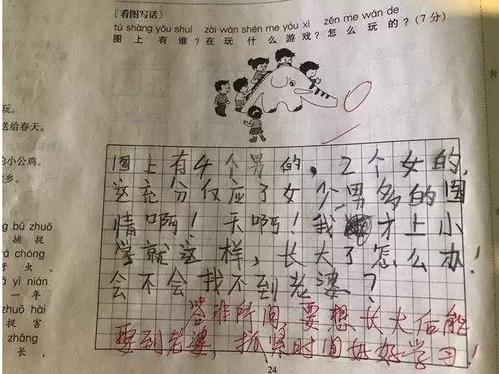 [看图写话]
tú shàng yǒu shuí zài wán shén me yóu xì zěn me wán de
图上有谁?在玩什么游戏?怎么玩的?(7分)
图上有4个男的,2个女的,
这充分仅应了女少男多的国
情啊!天啊!我才上小
学就这样,长大了怎么办!
会不会找不到老婆?
答非所问,要想长大后能
娶到老婆,抓紧时间好好学习!
24
玩。
送给春天。
的小公鸡。
乡。
ng bǔ zhuō
捕捉
rá chóng
虫、
à yì nián
一年
zhuō hài
捉害
zhǎng
长,